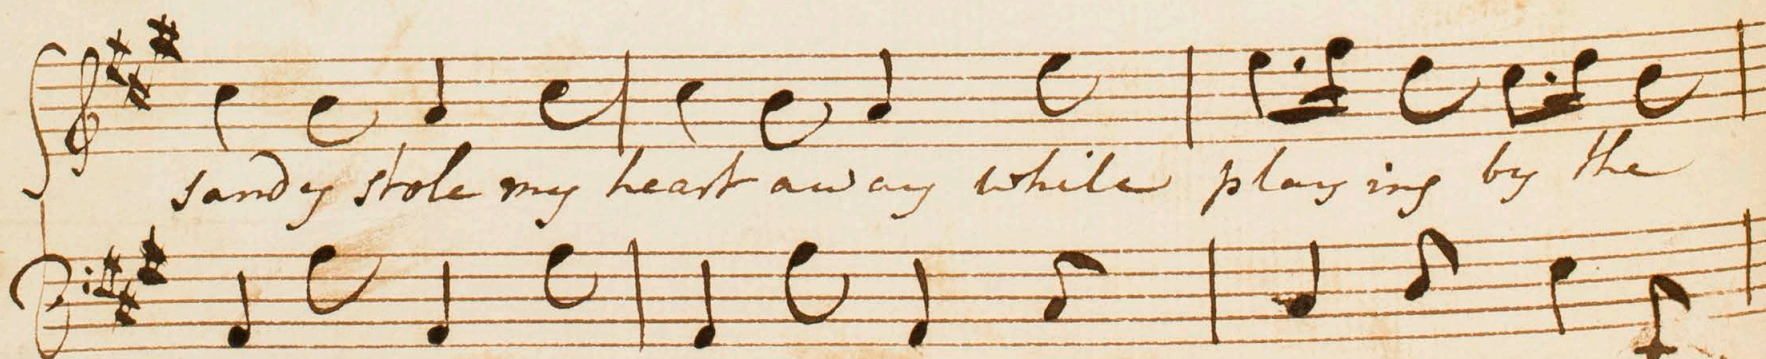 sandy stole my heart away while playing by the